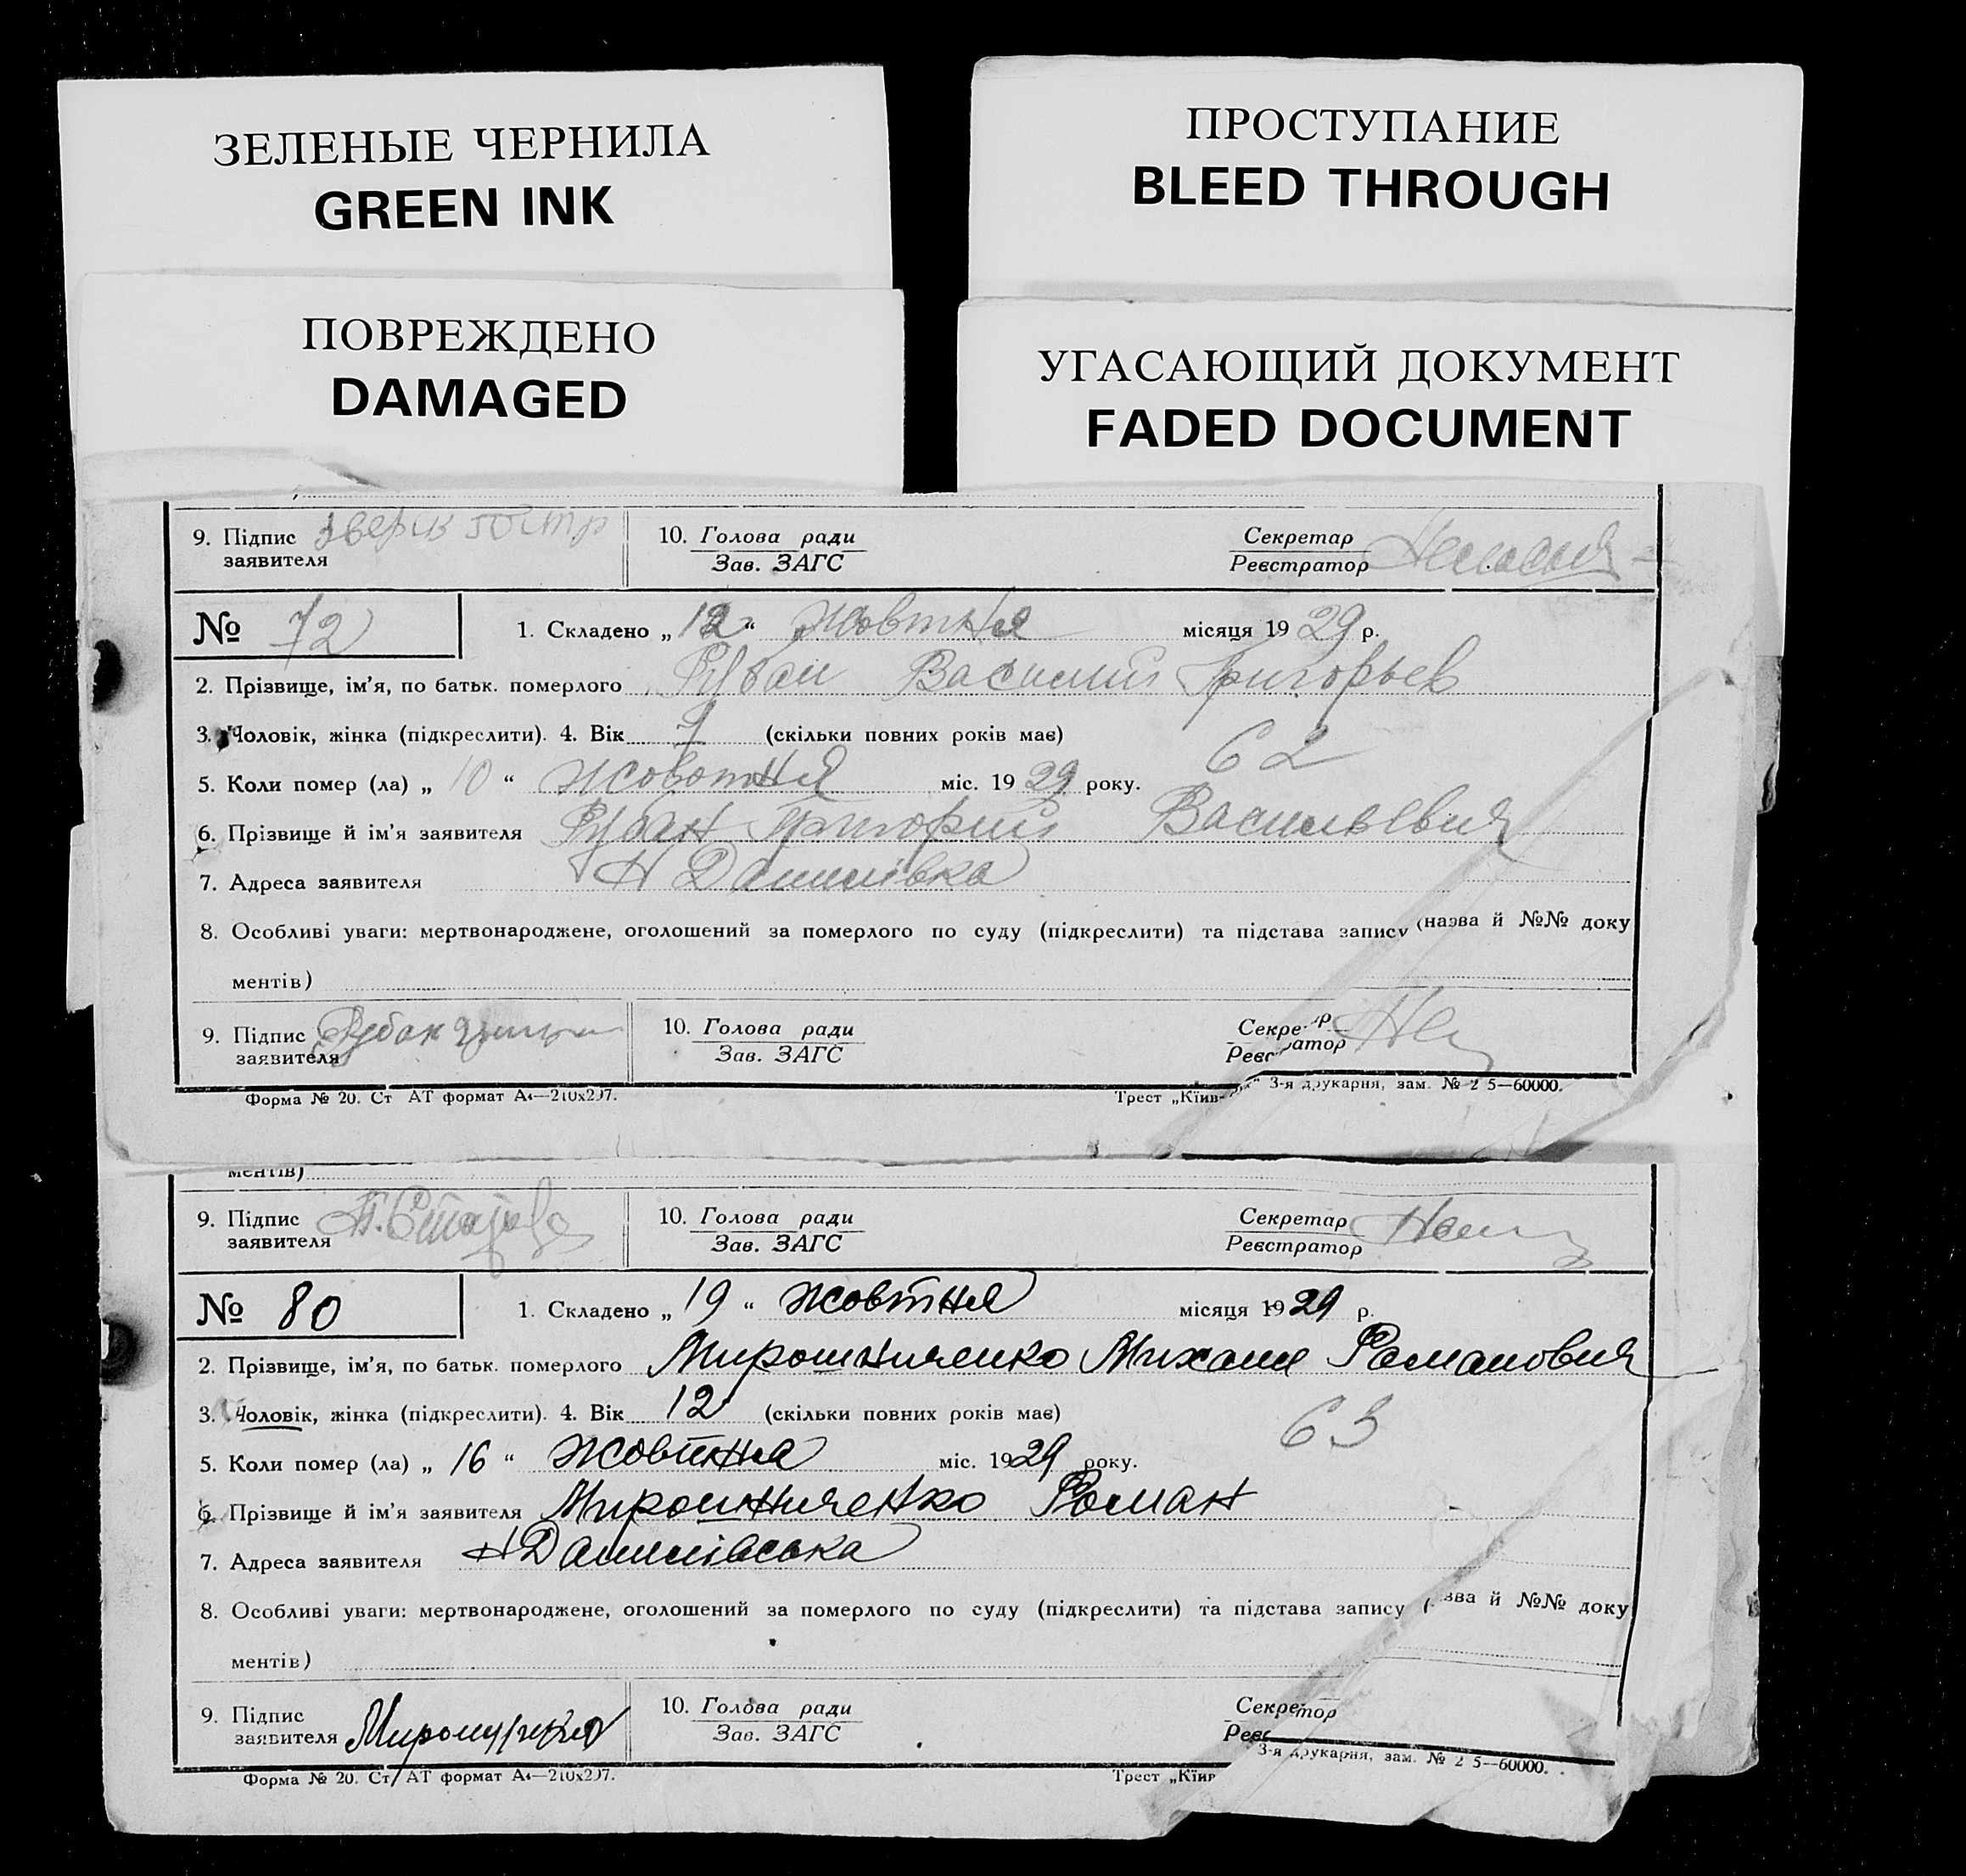 ЗЕЛЕНЫЕ ЧЕРНИЛА
GREEN INK
ПРОСТУПАНИЕ
BLEED THROUGH
ПОВРЕЖДЕНО
DAMAGED
УГАСАЮЩИЙ ДОКУМЕНТ
FADED DOCUMENT
9. Підпис заявителя 10. Голова ради Секретар
Зав. ЗАГС Реєстратор
№ 72 1. Складено „12“ жовтня місяця 1929 р.
2. Прізвище, ім’я, по батьк. померлого Рубан Василий Григорьев
3. Чоловік, жінка (підкреслити). 4. Вік 9 (скільки повних років має)
62
5. Коли помер (ла) „10“ жовотня міс. 1929 року.
6. Прізвище й ім’я заявителя Рубан Григорий Васильевич
7. Адреса заявителя Н Данилівка
8. Особливі уваги: мертвонароджене, оголошений за померлого по суду (підкреслити) та підстава запису (назва й №№ доку
ментів)
9. Підпис заявителя Рубан 10. Голова ради
Зав. ЗАГС
Форма № 20. Ст АТ формат А4—210х297. Трест „Київ- 3-я друкарня, зам. № 2 5—60000.
ментів)
9. Підпис заявителя 10. Голова ради Секретар
Зав. ЗАГС Реєстратор
№ 80 1. Складено „19“ жовтня місяця 1929 р.
2. Прізвище, ім’я, по батьк. померлого Мирошниченко Михаил Романович
3. Чоловік, жінка (підкреслити). 4. Вік 12 (скільки повних років має)
63
5. Коли помер (ла) „16“ жовтня міс. 1929 року.
6. Прізвище й ім’я заявителя Мирошниченко Роман
7. Адреса заявителя Н Данилівська
8. Особливі уваги: мертвонароджене, оголошений за померлого по суду (підкреслити) та підстава запису й №№ доку
ментів)
9. Підпис заявителя 10. Голова ради
Зав. ЗАГС
Форма № 20. Ст АТ формат А4—210х297. Трест 3-я друкарня, зам. № 2 5—60000.